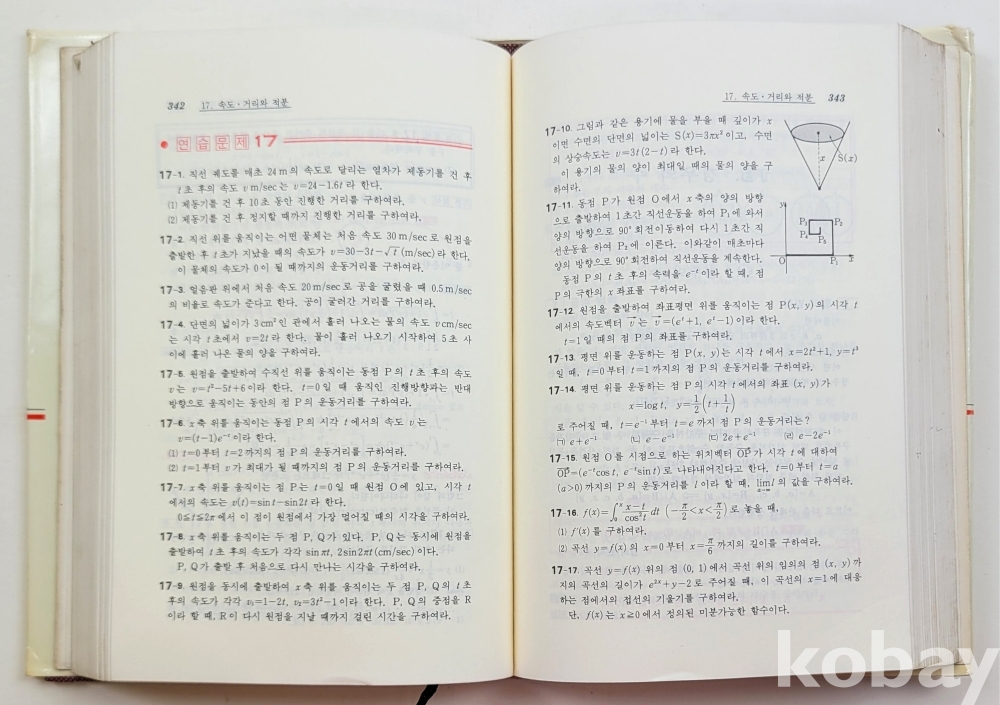 342 17. 속도·거리와 적분
연습문제 17
17-1. 직선 궤도를 매초 24m의 속도로 달리는 열차가 제동기를 건 후
t초 후의 속도 v m/sec는 v=24-1.6t라 한다.
(1) 제동기를 건 후 10초 동안 진행한 거리를 구하여라.
(2) 제동기를 건 후 정지할 때까지 진행한 거리를 구하여라.
17-2. 직선 위를 움직이는 어떤 물체는 처음 속도 30m/sec로 원점을
출발한 후 t초가 지났을 때의 속도가 v=30-3t-√t (m/sec)라 한다.
이 물체의 속도가 0이 될 때까지의 운동거리를 구하여라.
17-3. 얼음판 위에서 처음 속도 20m/sec로 공을 굴렸을 때 0.5m/sec
의 비율로 속도가 준다고 한다. 공이 굴러간 거리를 구하여라.
17-4. 단면의 넓이가 3cm²인 관에서 흘러 나오는 물의 속도 v cm/sec
는 시각 t초에서 v=2t라 한다. 물이 흘러 나오기 시작하여 5초 사
이에 흘러 나온 물의 양을 구하여라.
17-5. 원점을 출발하여 수직선 위를 움직이는 동점 P의 t초 후의 속도
v는 v=t²-5t+6이라 한다. t=0일 때 움직인 진행방향과는 반대
방향으로 움직이는 동안의 점 P의 운동거리를 구하여라.
17-6. x축 위를 움직이는 동점 P의 시각 t에서의 속도 v는
v=(t-1)e⁻ᵗ이라 한다.
(1) t=0부터 t=2까지의 점 P의 운동거리를 구하여라.
(2) t=1부터 v가 최대가 될 때까지의 점 P의 운동거리를 구하여라.
17-7. x축 위를 움직이는 점 P는 t=0일 때 원점 O에 있고, 시각 t
에서의 속도는 v(t)=sin t-sin 2t라 한다.
0≦t≦2π에서 이 점이 원점에서 가장 멀어질 때의 시각을 구하여라.
17-8. x축 위를 움직이는 두 점 P, Q가 있다. P, Q는 동시에 원점을
출발하여 t초 후의 속도가 각각 sin πt, 2sin 2πt(cm/sec)이다.
P, Q가 출발 후 처음으로 다시 만나는 시각을 구하여라.
17-9. 원점을 동시에 출발하여 x축 위를 움직이는 두 점 P, Q의 t초
후의 속도가 각각 v₁=1-2t, v₂=3t²-1이라 한다. P, Q의 중점을 R
이라 할 때, R이 다시 원점을 지날 때까지 걸린 시간을 구하여라.
17. 속도·거리와 적분 343
17-10. 그림과 같은 용기에 물을 부을 때 깊이가 x
이면 수면의 단면의 넓이는 S(x)=3πx²이고, 수면
의 상승속도는 v=3t(2-t)라 한다.
이 용기의 물의 양이 최대일 때의 물의 양을 구
하여라.
x
S(x)
17-11. 동점 P가 원점 O에서 x축의 양의 방향
으로 출발하여 1초간 직선운동을 하여 P₁에 와서
양의 방향으로 90° 회전이동하여 다시 1초간 직
선운동을 하여 P₂에 이른다. 이와같이 매초마다
양의 방향으로 90° 회전하여 직선운동을 계속한다.
동점 P의 t초 후의 속력을 e⁻ᵗ이라 할 때, 점
P의 극한의 x좌표를 구하여라.
y
P₃ P₂
P₄ P₅
O P₁ x
17-12. 원점을 출발하여 좌표평면 위를 움직이는 점 P(x, y)의 시각 t
에서의 속도벡터 v⃗는 v⃗=(eᵗ+1, eᵗ-1)이라 한다.
t=1일 때의 점 P의 좌표를 구하여라.
17-13. 평면 위를 운동하는 점 P(x, y)는 시각 t에서 x=2t²+1, y=t³
일 때, t=0부터 t=1까지의 점 P의 운동거리를 구하여라.
17-14. 평면 위를 운동하는 점 P의 시각 t에서의 좌표 (x, y)가
x=log t, y=1/2(t+1/t)
로 주어질 때, t=e⁻¹부터 t=e까지 점 P의 운동거리는?
㈀ e+e⁻¹ ㈁ e-e⁻¹ ㈂ 2e+e⁻¹ ㈃ e-2e⁻¹
17-15. 원점 O를 시점으로 하는 위치벡터 OP⃗가 시각 t에 대하여
OP⃗=(e⁻ᵗcos t, e⁻ᵗsin t)로 나타내어진다고 한다. t=0부터 t=a
(a>0)까지의 P의 운동거리를 l이라 할 때, lim l의 값을 구하여라.
a→∞
17-16. f(x)=∫₀ˣ (x-t)/cos²t dt (-π/2<x<π/2)로 놓을 때,
(1) f′(x)를 구하여라.
(2) 곡선 y=f(x)의 x=0부터 x=π/6까지의 길이를 구하여라.
17-17. 곡선 y=f(x) 위의 점 (0, 1)에서 곡선 위의 임의의 점 (x, y)까
지의 곡선의 길이가 e²ˣ+y-2로 주어질 때, 이 곡선의 x=1에 대응
하는 점에서의 접선의 기울기를 구하여라.
단, f(x)는 x≧0에서 정의된 미분가능한 함수이다.
kobay